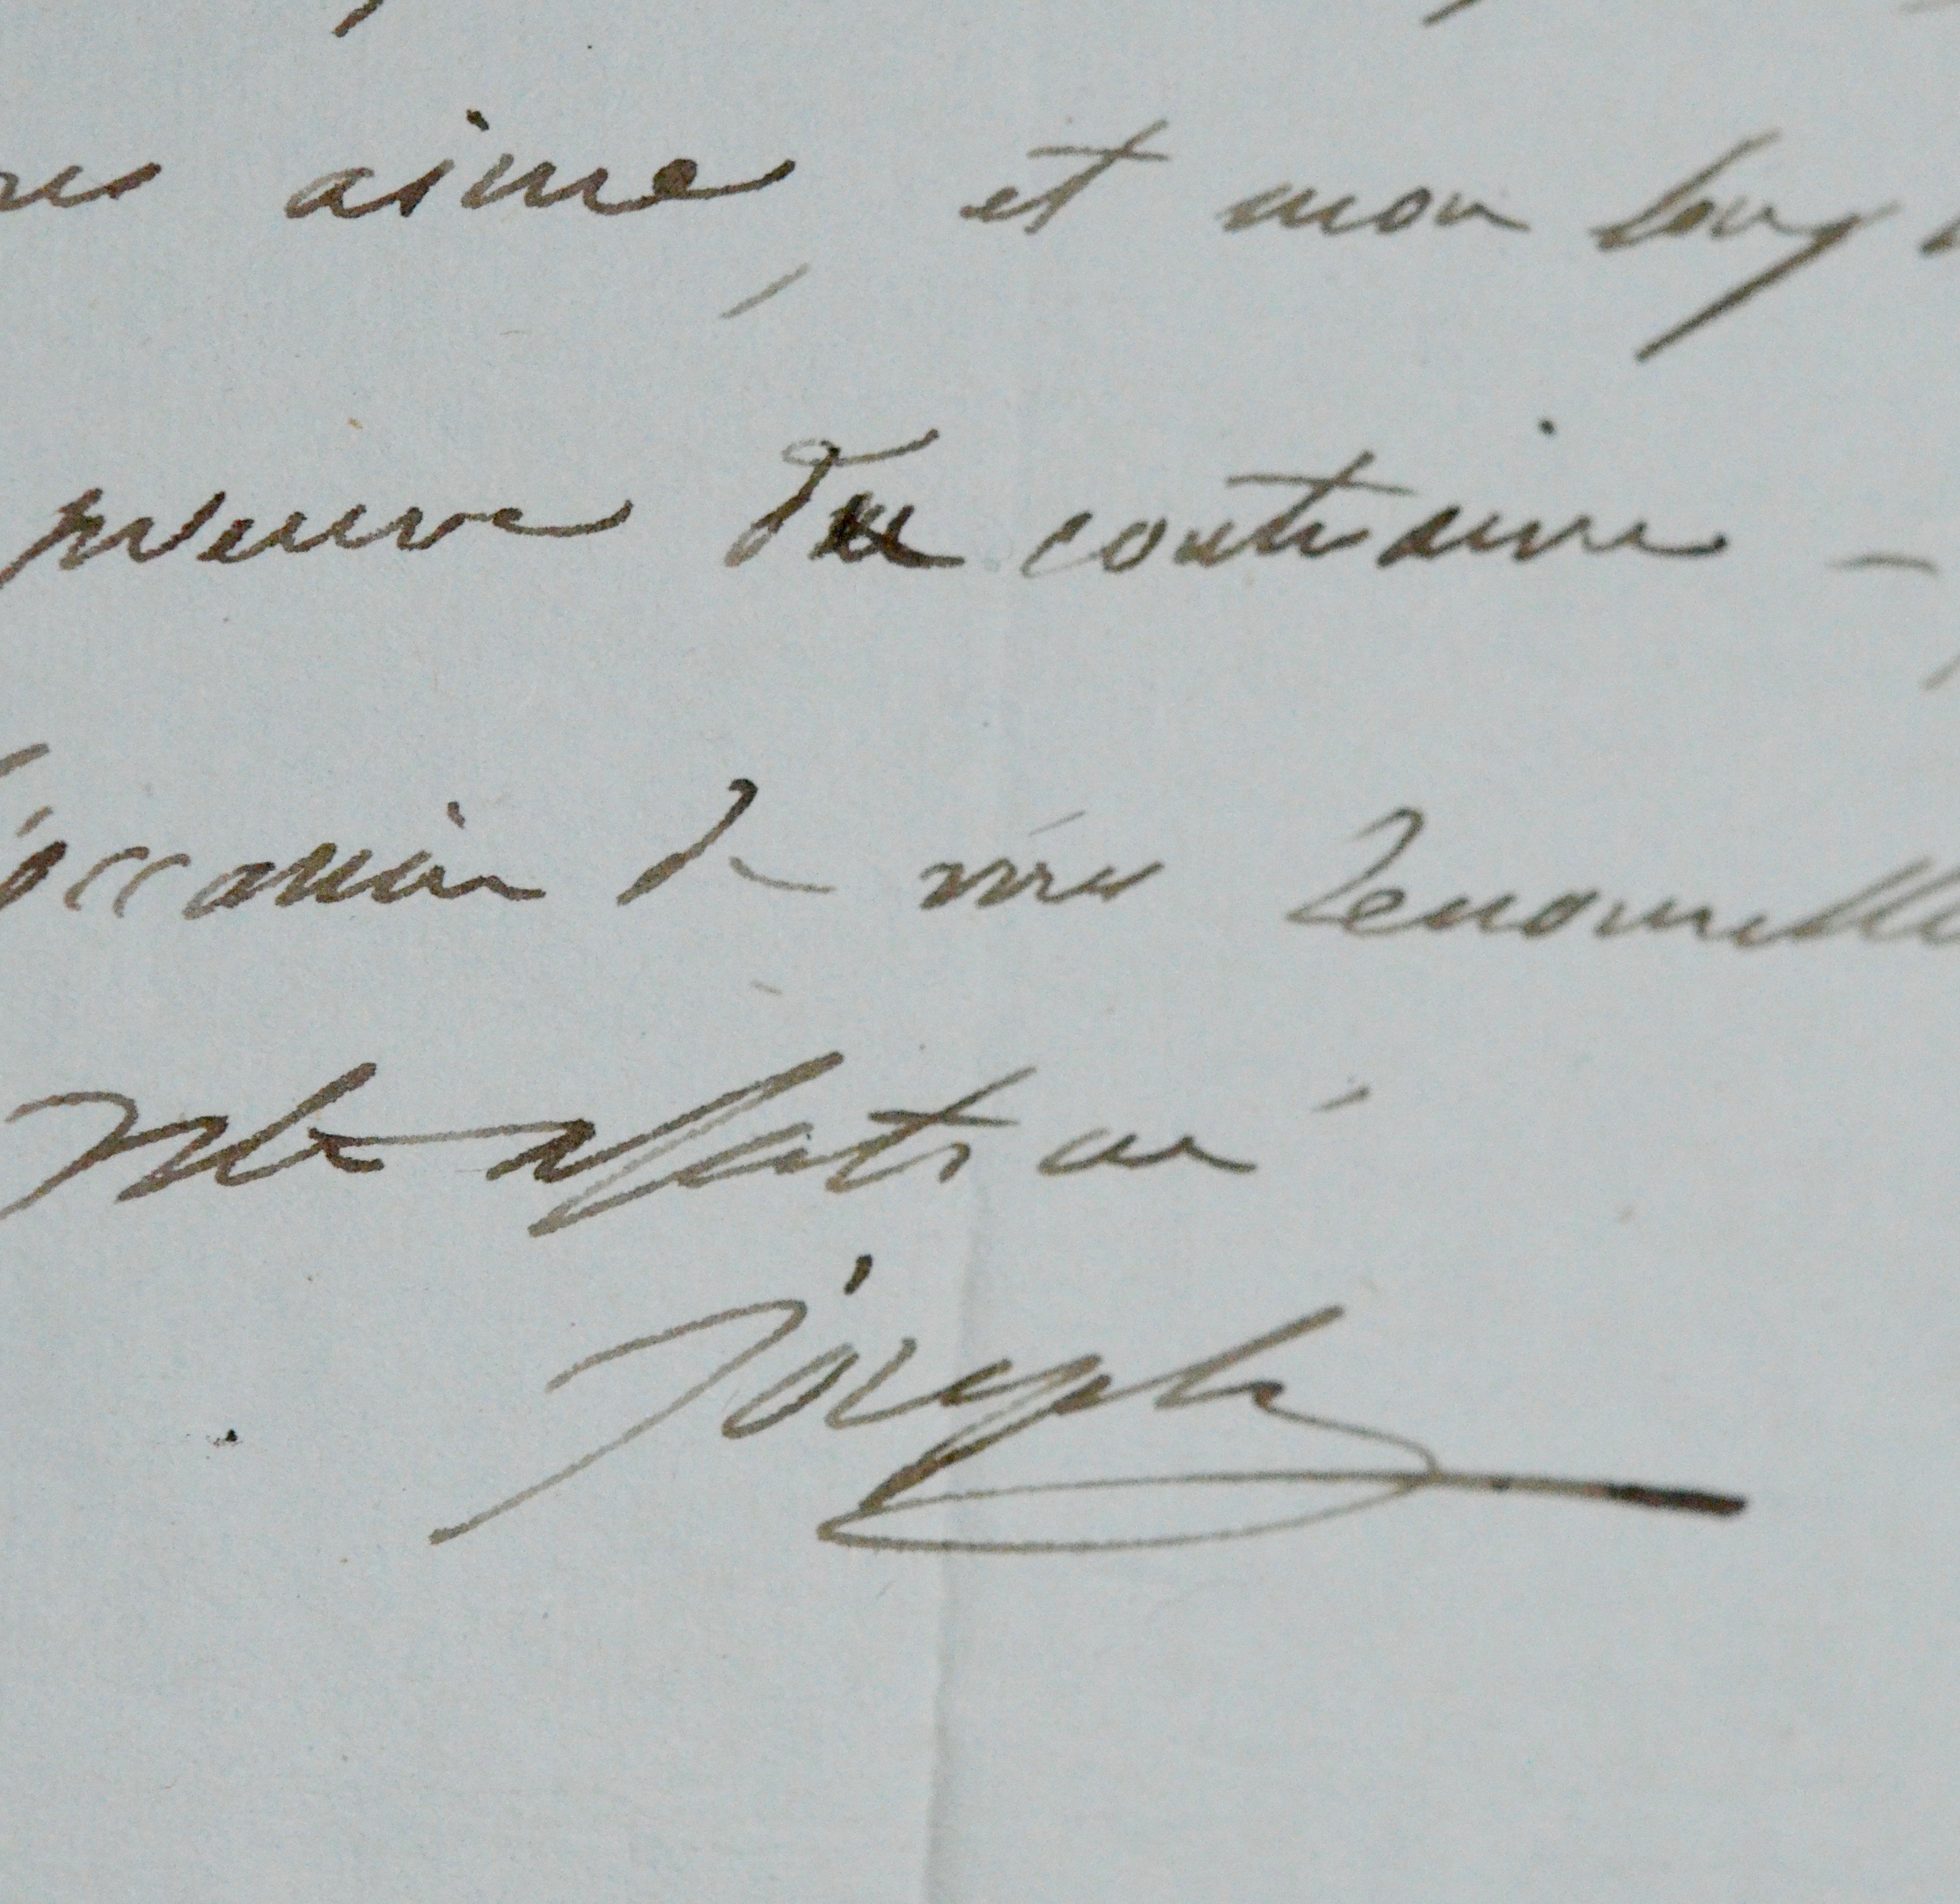 aime, et mon long
preuve du contraire -
l'occasion de vous renouvelle
affectioné
Joseph